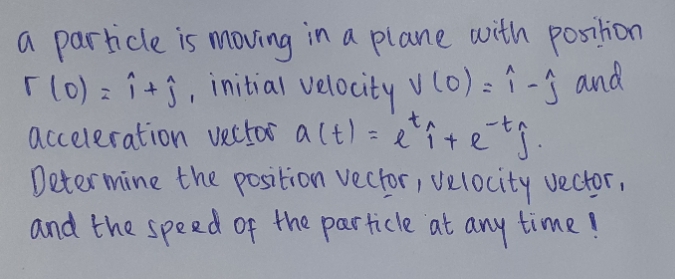 a particle is moving in a plane with position
r(0) = î + ĵ, initial velocity v(0) = î - ĵ and
acceleration vector a(t) = e^t î + e^-t ĵ.
Determine the position vector, velocity vector,
and the speed of the particle at any time!